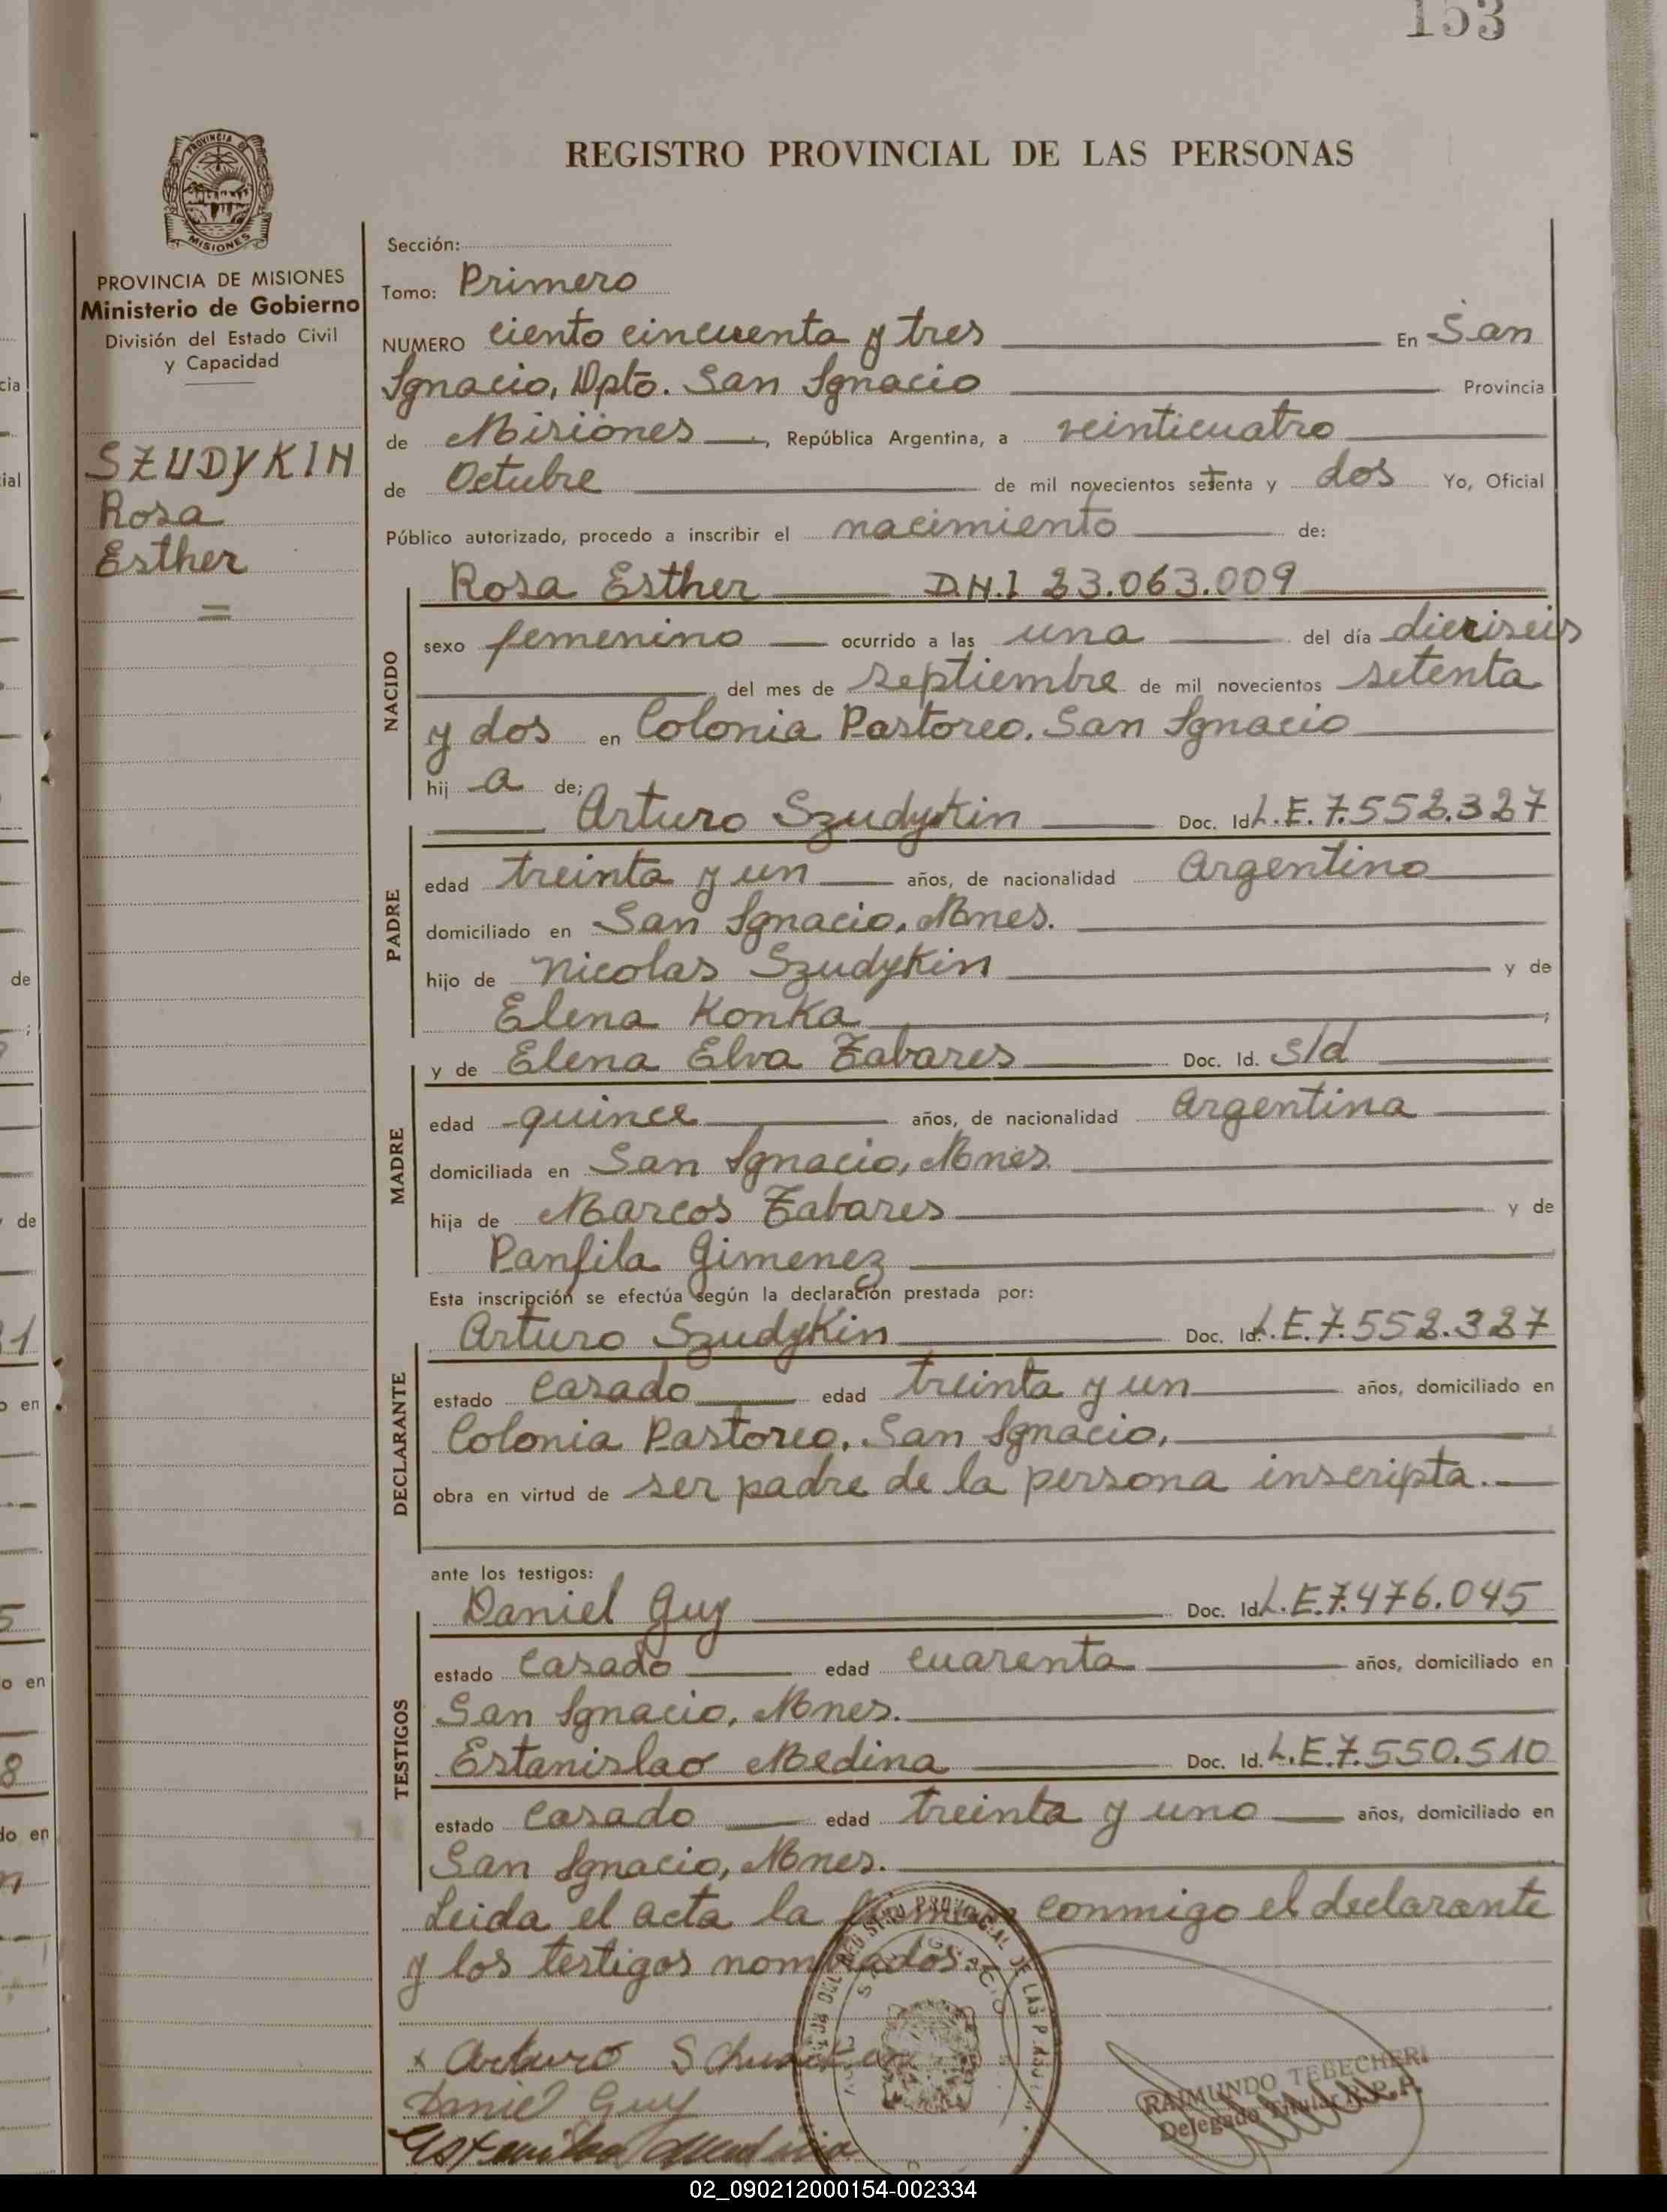 153
PROVINCIA DE
MISIONES
PROVINCIA DE MISIONES
Ministerio de Gobierno
División del Estado Civil
y Capacidad
SZUDYKIN
Rosa
Esther
REGISTRO PROVINCIAL DE LAS PERSONAS
Sección:
Tomo: Primero
NUMERO ciento cincuenta y tres En San
Ignacio, Dpto. San Ignacio Provincia
de Misiones, República Argentina, a veinticuatro
de Octubre de mil novecientos setenta y dos Yo, Oficial
Público autorizado, procedo a inscribir el nacimiento de:
Rosa Esther D.N.I 23.063.009
NACIDO
sexo femenino ocurrido a las una del día dieciseis
del mes de septiembre de mil novecientos setenta
y dos en Colonia Pastoreo, San Ignacio
hij a de;
Arturo Szudykin Doc. Id. L.E. 7.552.327
PADRE
edad treinta y un años, de nacionalidad Argentino
domiciliado en San Ignacio, Mnes.
hijo de Nicolas Szudykin y de
Elena Konka ;
y de Elena Elva Tabares Doc. Id. s/d
MADRE
edad quince años, de nacionalidad Argentina
domiciliada en San Ignacio, Mnes.
hija de Marcos Tabares y de
Panfila Gimenez
Esta inscripción se efectúa según la declaración prestada por:
Arturo Szudykin Doc. Id. L.E. 7.552.327
DECLARANTE
estado casado edad treinta y un años, domiciliado en
Colonia Pastoreo, San Ignacio,
obra en virtud de ser padre de la persona inscripta.
ante los testigos:
Daniel Guy Doc. Id. L.E. 7.476.045
TESTIGOS
estado casado edad cuarenta años, domiciliado en
San Ignacio, Mnes.
Estanislao Medina Doc. Id. L.E. 7.550.510
estado casado edad treinta y uno años, domiciliado en
San Ignacio, Mnes.
Leida el acta la firman conmigo el declarante
y los testigos nombrados.
x Arturo
Daniel Guy
RAIMUNDO TEBECHERI
Delegado Titular R.P.P.
02_090212000154-002334